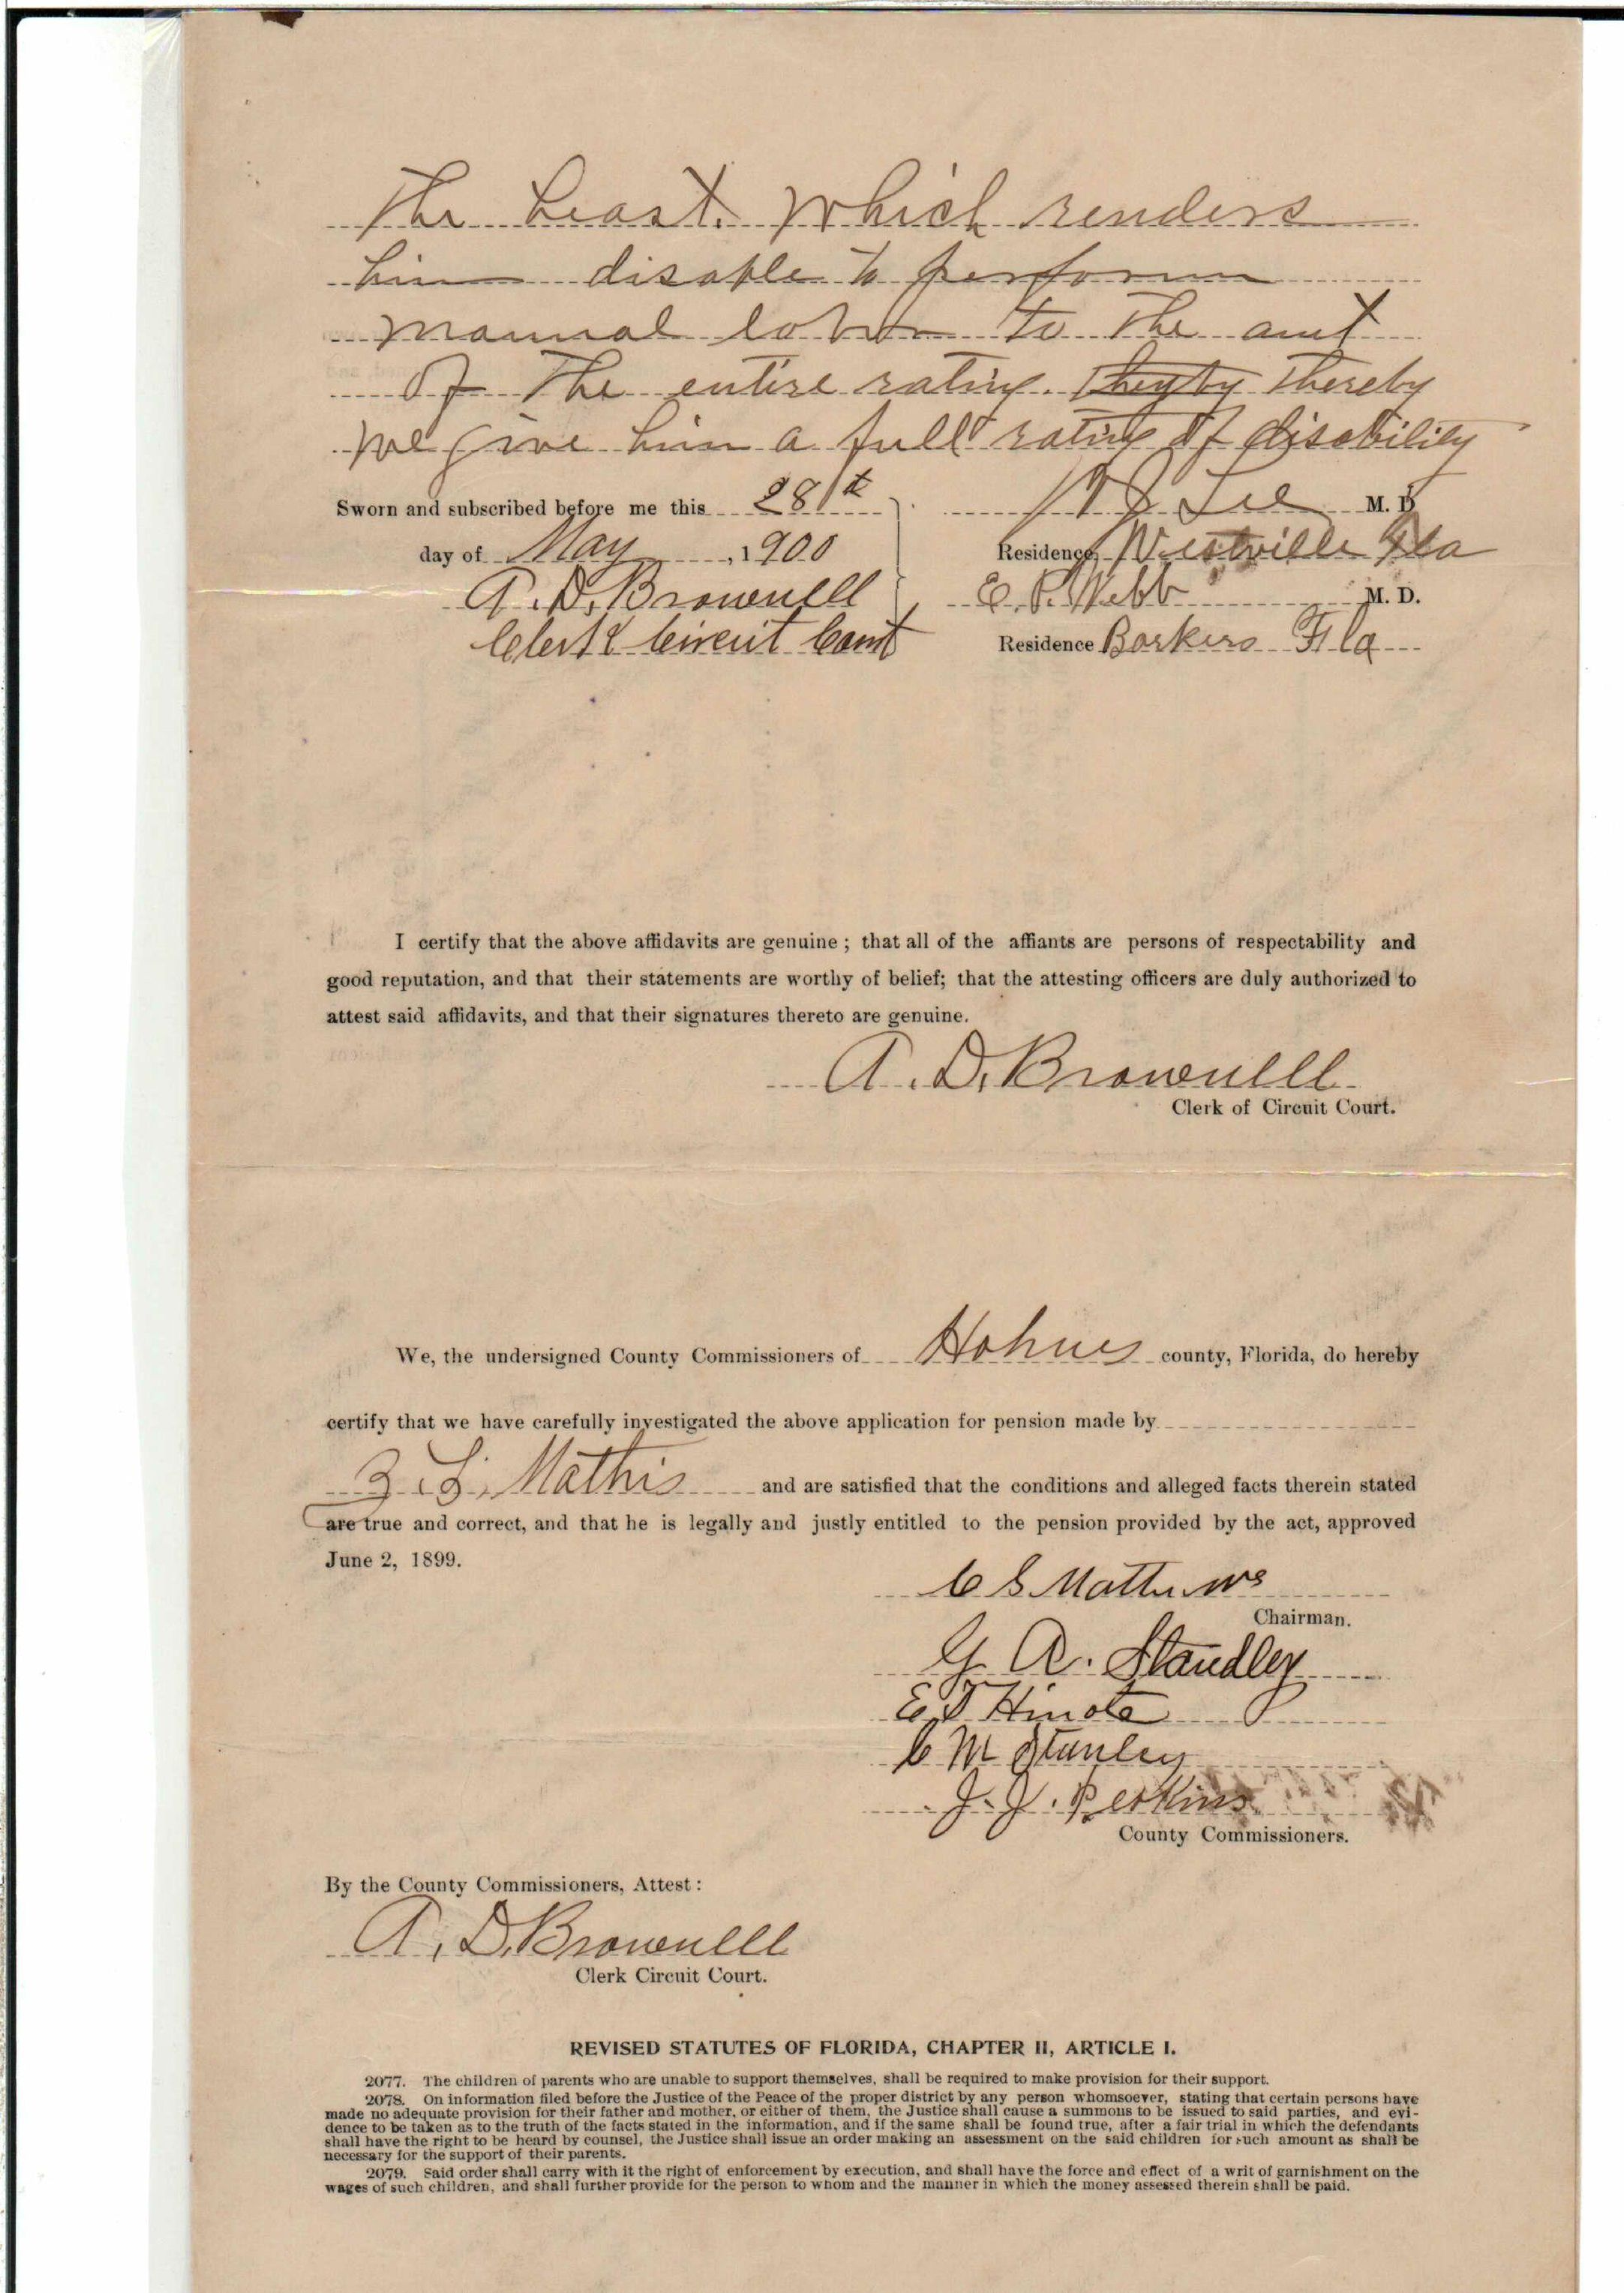 The heast. which renders
him disable to perform
manual labor to the amt
of the entire rating. Theyby Thereby
we give him a full rating of disability
Sworn and subscribed before me this 28th
day of May, 1900
A. D. Brownell
Clerk Circuit Court
J Lee M. D.
Residence, Westville Fla
E. P. Webb M. D.
Residence Barkers Fla
I certify that the above affidavits are genuine; that all of the affiants are persons of respectability and
good reputation, and that their statements are worthy of belief; that the attesting officers are duly authorized to
attest said affidavits, and that their signatures thereto are genuine.
A. D. Brownell
Clerk of Circuit Court.
We, the undersigned County Commissioners of Holmes county, Florida, do hereby
certify that we have carefully investigated the above application for pension made by
Mathis and are satisfied that the conditions and alleged facts therein stated
are true and correct, and that he is legally and justly entitled to the pension provided by the act, approved
June 2, 1899.
C S Matthews
Chairman.
G A. Standley
E T Hinote
C M Stanley
J. J. Perkins
County Commissioners.
By the County Commissioners, Attest:
A. D. Brownell
Clerk Circuit Court.
REVISED STATUTES OF FLORIDA, CHAPTER II, ARTICLE I.
2077. The children of parents who are unable to support themselves, shall be required to make provision for their support.
2078. On information filed before the Justice of the Peace of the proper district by any person whomsoever, stating that certain persons have
made no adequate provision for their father and mother, or either of them, the Justice shall cause a summons to be issued to said parties, and evi-
dence to be taken as to the truth of the facts stated in the information, and if the same shall be found true, after a fair trial in which the defendants
shall have the right to be heard by counsel, the Justice shall issue an order making an assessment on the said children for such amount as shall be
necessary for the support of their parents.
2079. Said order shall carry with it the right of enforcement by execution, and shall have the force and effect of a writ of garnishment on the
wages of such children, and shall further provide for the person to whom and the manner in which the money assessed therein shall be paid.